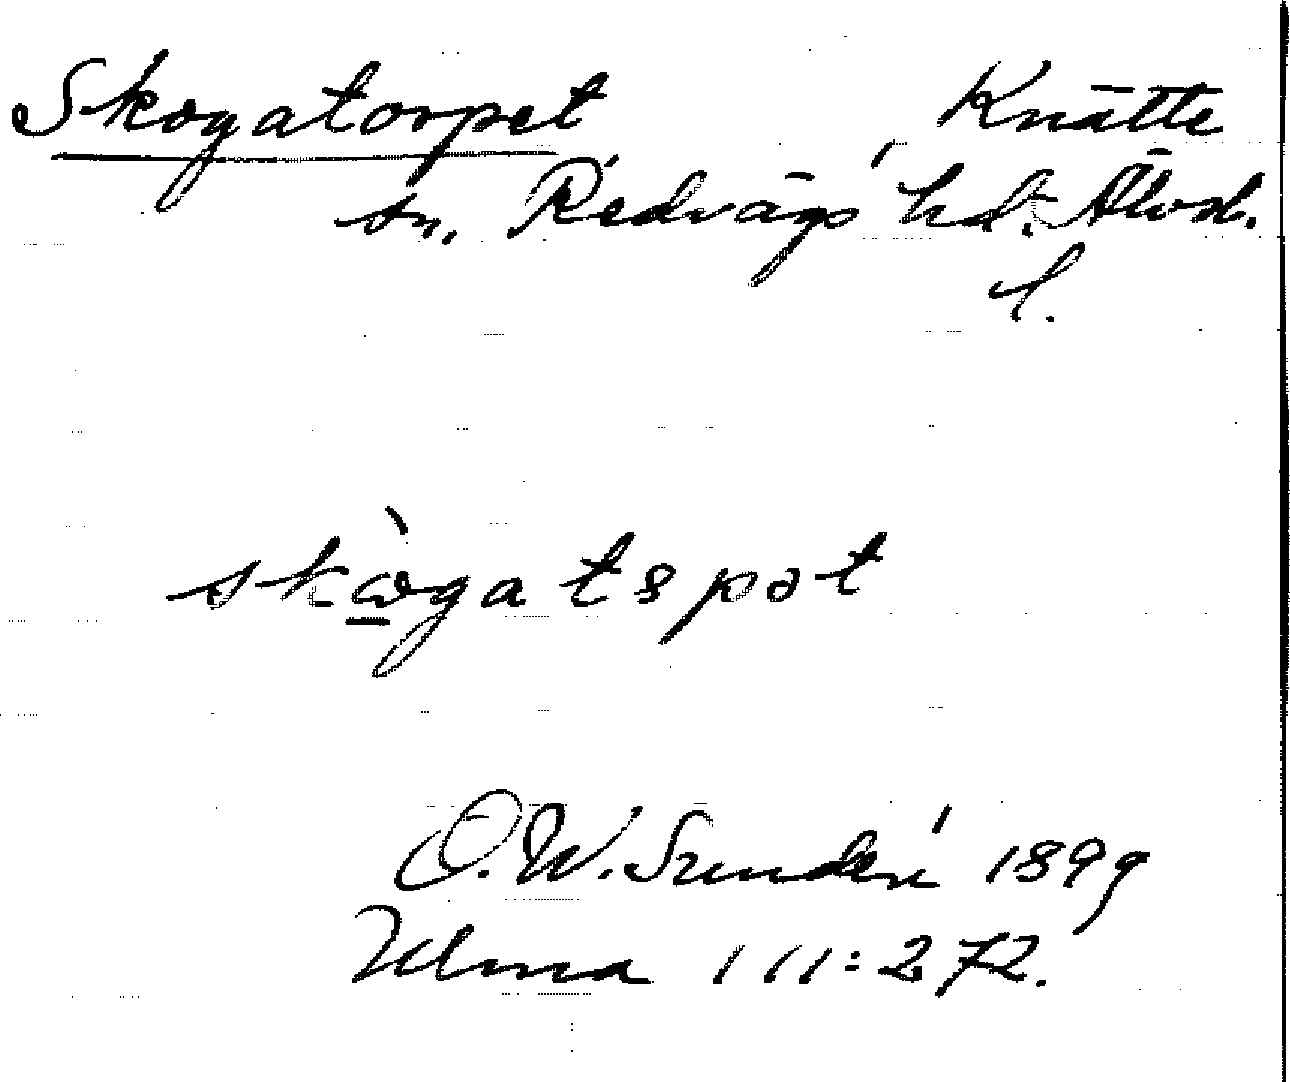 Skogatorpet Knätte
sn, Redvägs hd. Älvsb.
l.
skògatspət
O. W. Sundén 1899
Ulma 111:272.